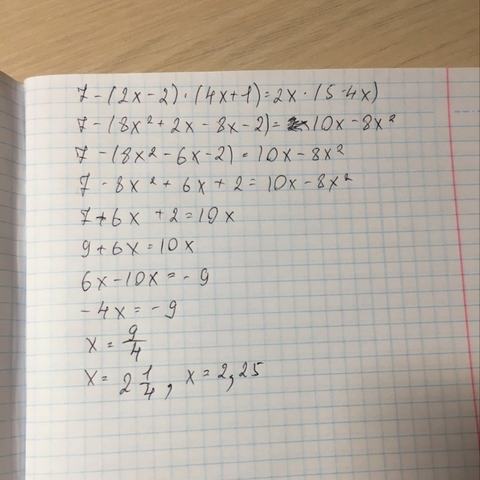 7-(2x-2)·(4x+1)=2x·(5-4x)
7-(8x²+2x-8x-2)=10x-8x²
7-(8x²-6x-2)=10x-8x²
7-8x²+6x+2=10x-8x²
7+6x+2=10x
9+6x=10x
6x-10x=-9
-4x=-9
x=9/4
x=2 1/4, x=2,25